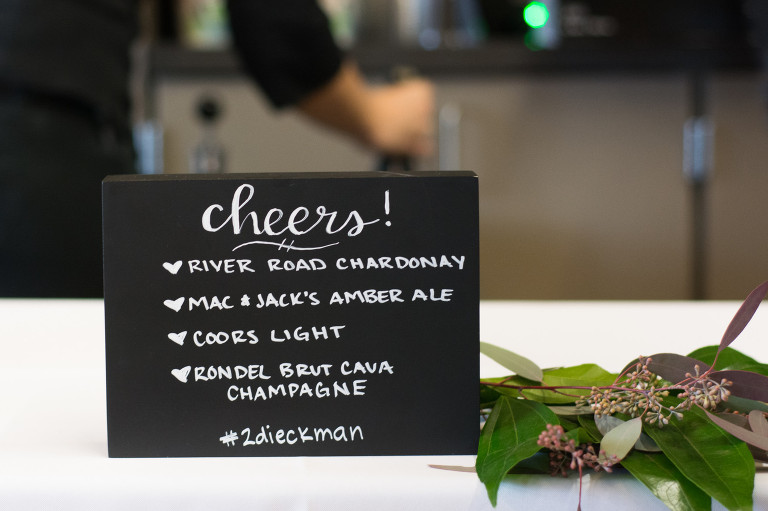 cheers!
RIVER ROAD CHARDONAY
MAC & JACK'S AMBER ALE
COORS LIGHT
RONDEL BRUT CAVA
CHAMPAGNE
#2dieckman